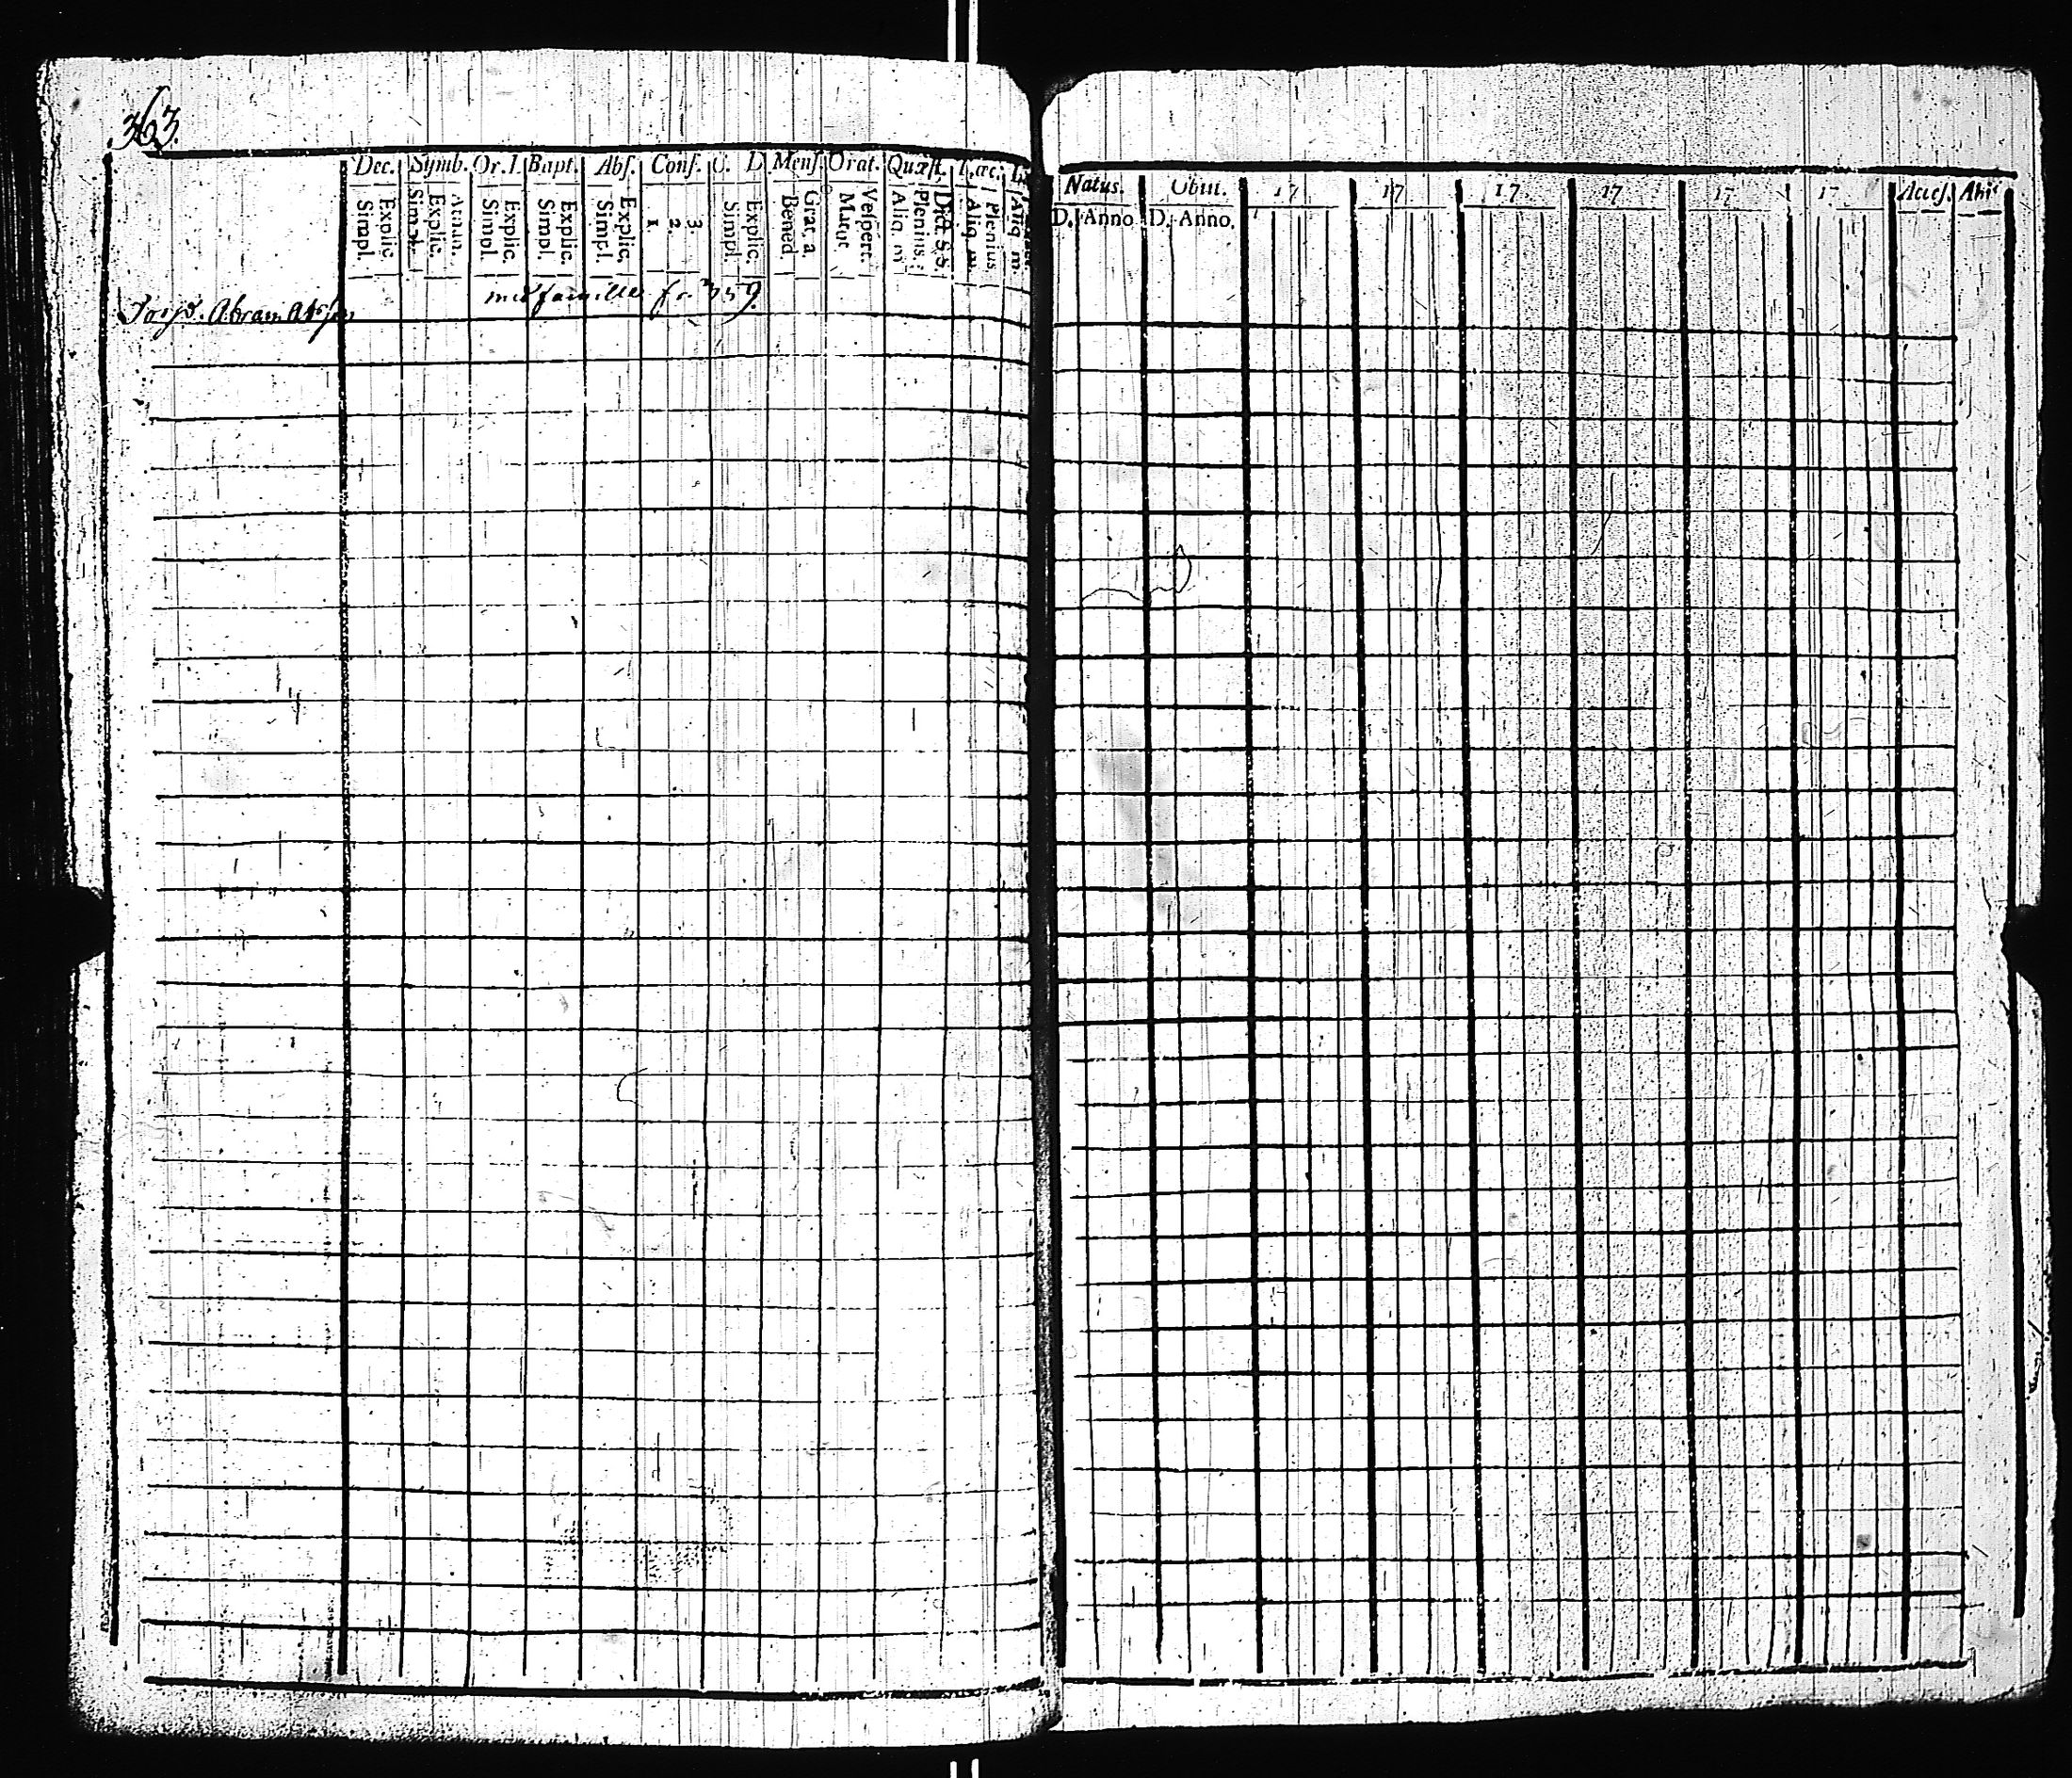 363.
Dec. Symb. Or. D. Bapt. Abs. Conf. C. D Mens. Orat. Quæst. Natus. Obiit. 17 17 17 17 17 17 Acces. Abiit
Simpl. Explic. Simpl. Explic. Athan. Simpl. Explic. Simpl. Explic. Simpl. Explic. 1. 2. 3. Simpl. Explic. Bened. Grat. a. Matut Vespert. Aliq. m Plenius. Dict. S. S. Aliq. m. Plenius Aliq. m. D. Anno D. Anno.
med famille fo. 359.
Torp. Abram Abrs.